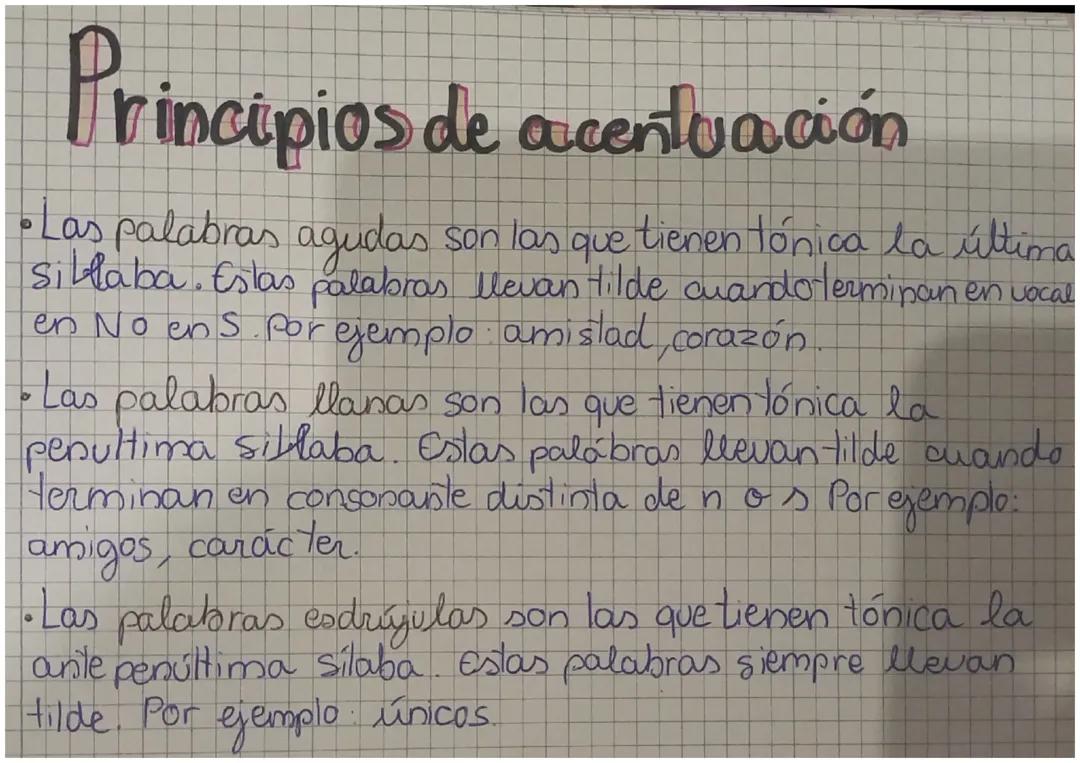 Principios de acentuación
• Las palabras agudas son las que tienen tónica la última
sibllaba. Estas palabras llevan tilde cuando terminan en vocal
en N o en S. Por ejemplo: amistad, corazón.
• Las palabras llanas son las que tienen tónica la
penultima sibllaba. Estas palábras llevan tilde cuando
terminan en consonante distinta de n o s Por ejemplo:
amigos, carácter.
• Las palabras esdrújulas son las que tienen tónica la
ante penúltima sílaba. Estas palabras siempre llevan
tilde. Por ejemplo: únicos.